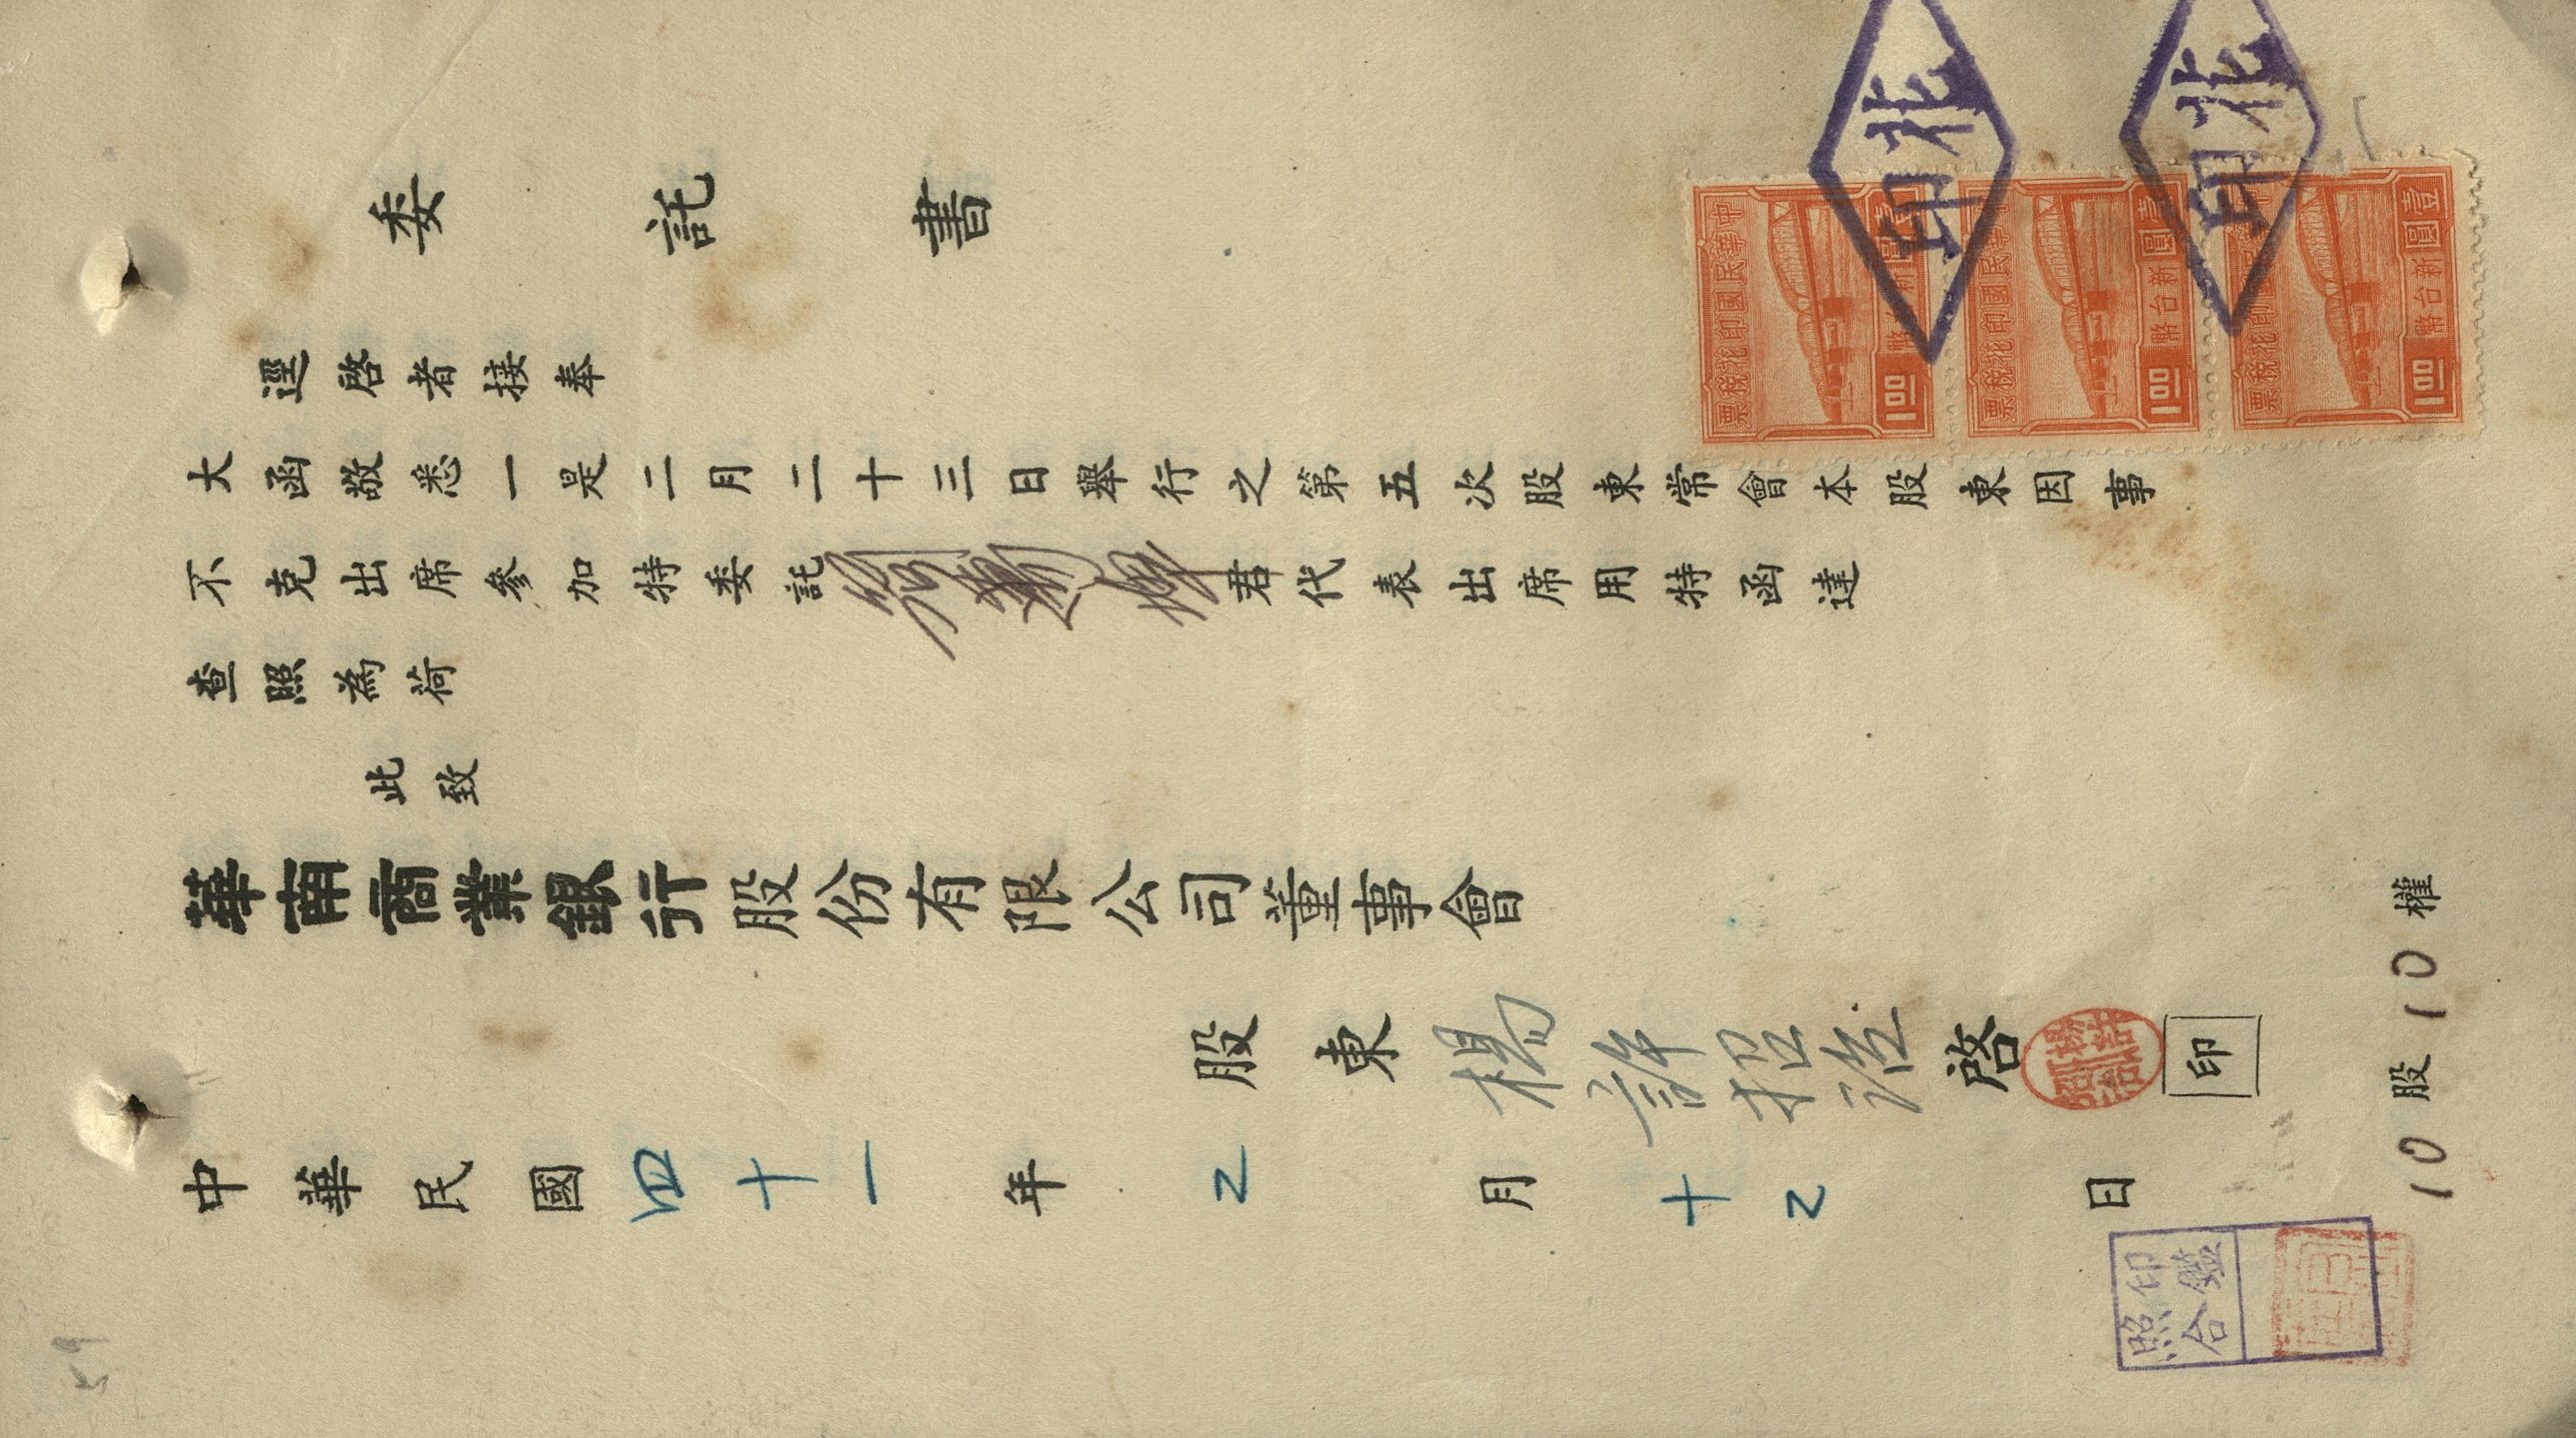 委託書
逕啓者接奉
大函敬悉一是二月二十三日舉行之第五次股東常會本股東因事
不克出席參加特委託 君代表出席用特函達
查照為荷
此致
華南商業銀行股份有限公司董事會
股東楊許招治啓
印
中華民國四十一年2月十2日
10股10權
中華民國印花稅票
壹圓新台幣
1.00
中華民國印花稅票
壹圓新台幣
1.00
中華民國印花稅票
壹圓新台幣
1.00
北印
北印
印鑑
照合